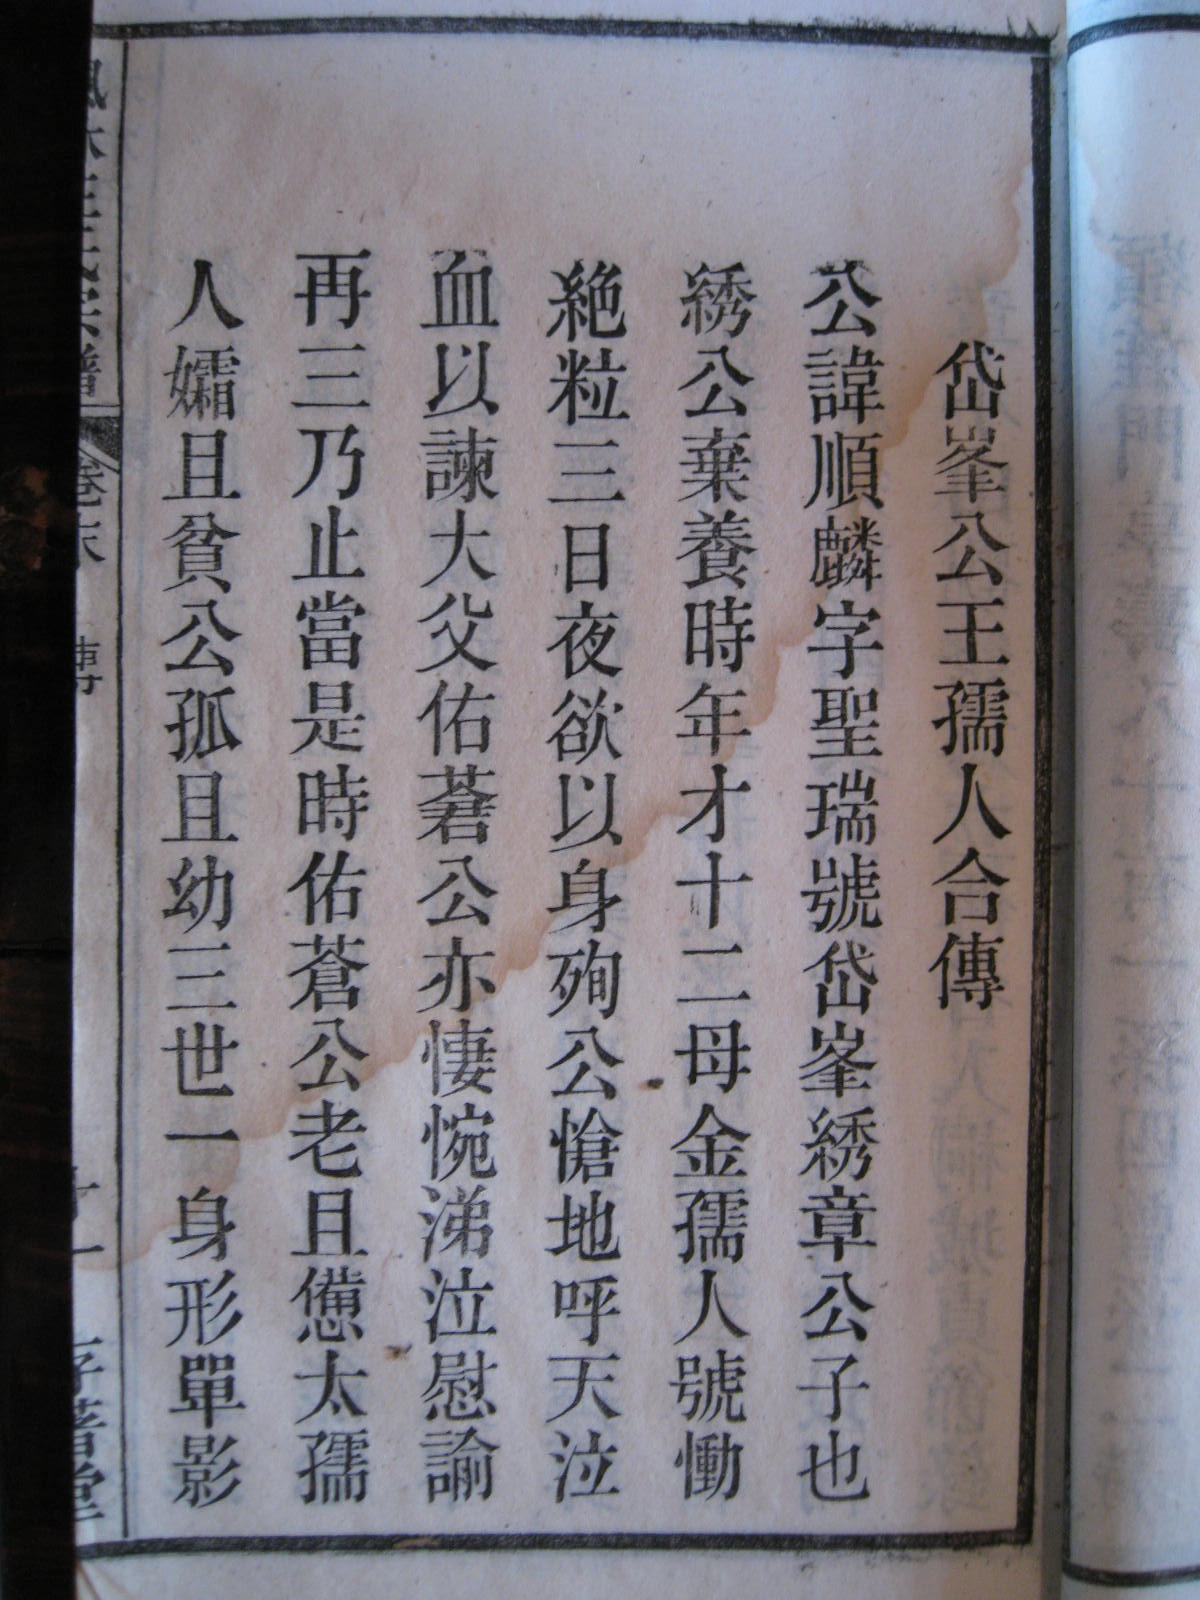 岱峯公王孺人合傳
公諱順麟字聖瑞號岱峯綉章公子也
綉公棄養時年才十二母金孺人號慟
絶粒三日夜欲以身殉公愴地呼天泣
血以諫大父佑蒼公亦悽惋涕泣慰諭
再三乃止當是時佑蒼公老且憊太孺
人孀且貧公孤且幼三世一身形單影
王氏宗譜 卷末 傳